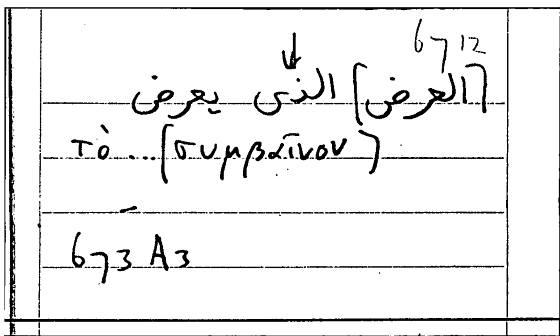 6712
[العرض] الذى يعرض
τὸ...[συμβαῖνον]
673 A3